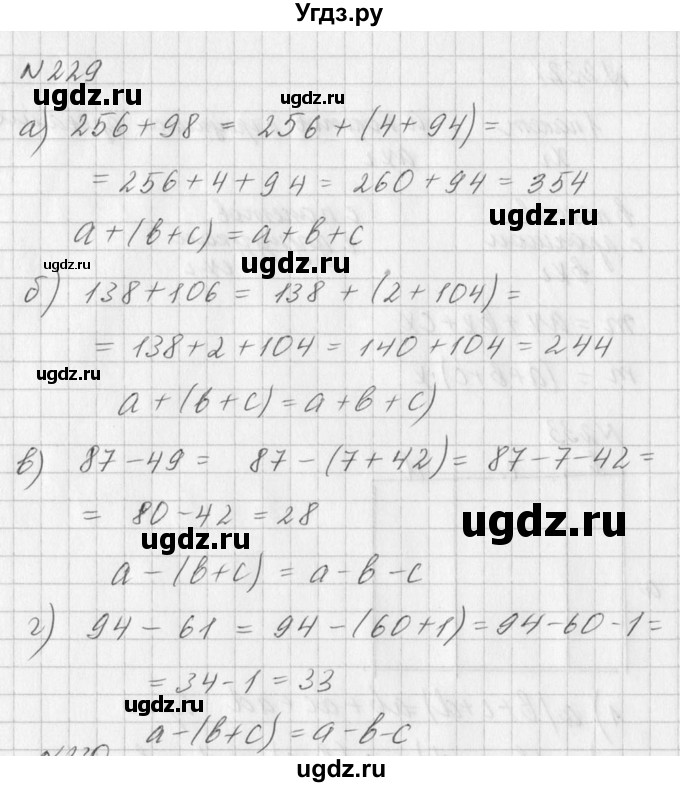 Угдз.ру
N229
ugdz.ru ugdz.ru
а) 256+98 = 256+(4+94)=
= 256+4+94= 260+94=354
ugdz.ru
a+(b+c)=a+b+c
ugdz.ru ugdz.ru
б) 138+106 = 138+(2+104)=
= 138+2+104=140+104=244
ugdz.ru
a+(b+c)=a+b+c)
в) 87-49= 87-(7+42)=87-7-42=
= 80-42=28
ugdz.ru
ugdz.ru
a-(b+c)=a-b-c
г) 94-61 = 94-(60+1)=94-60-1=
= 34-1=33
ugdz.ru
a-(b+c)=a-b-c
N230
ugdz.ru